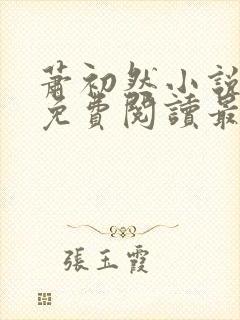 蕭初然小說
免費閱讀最
張玉霞